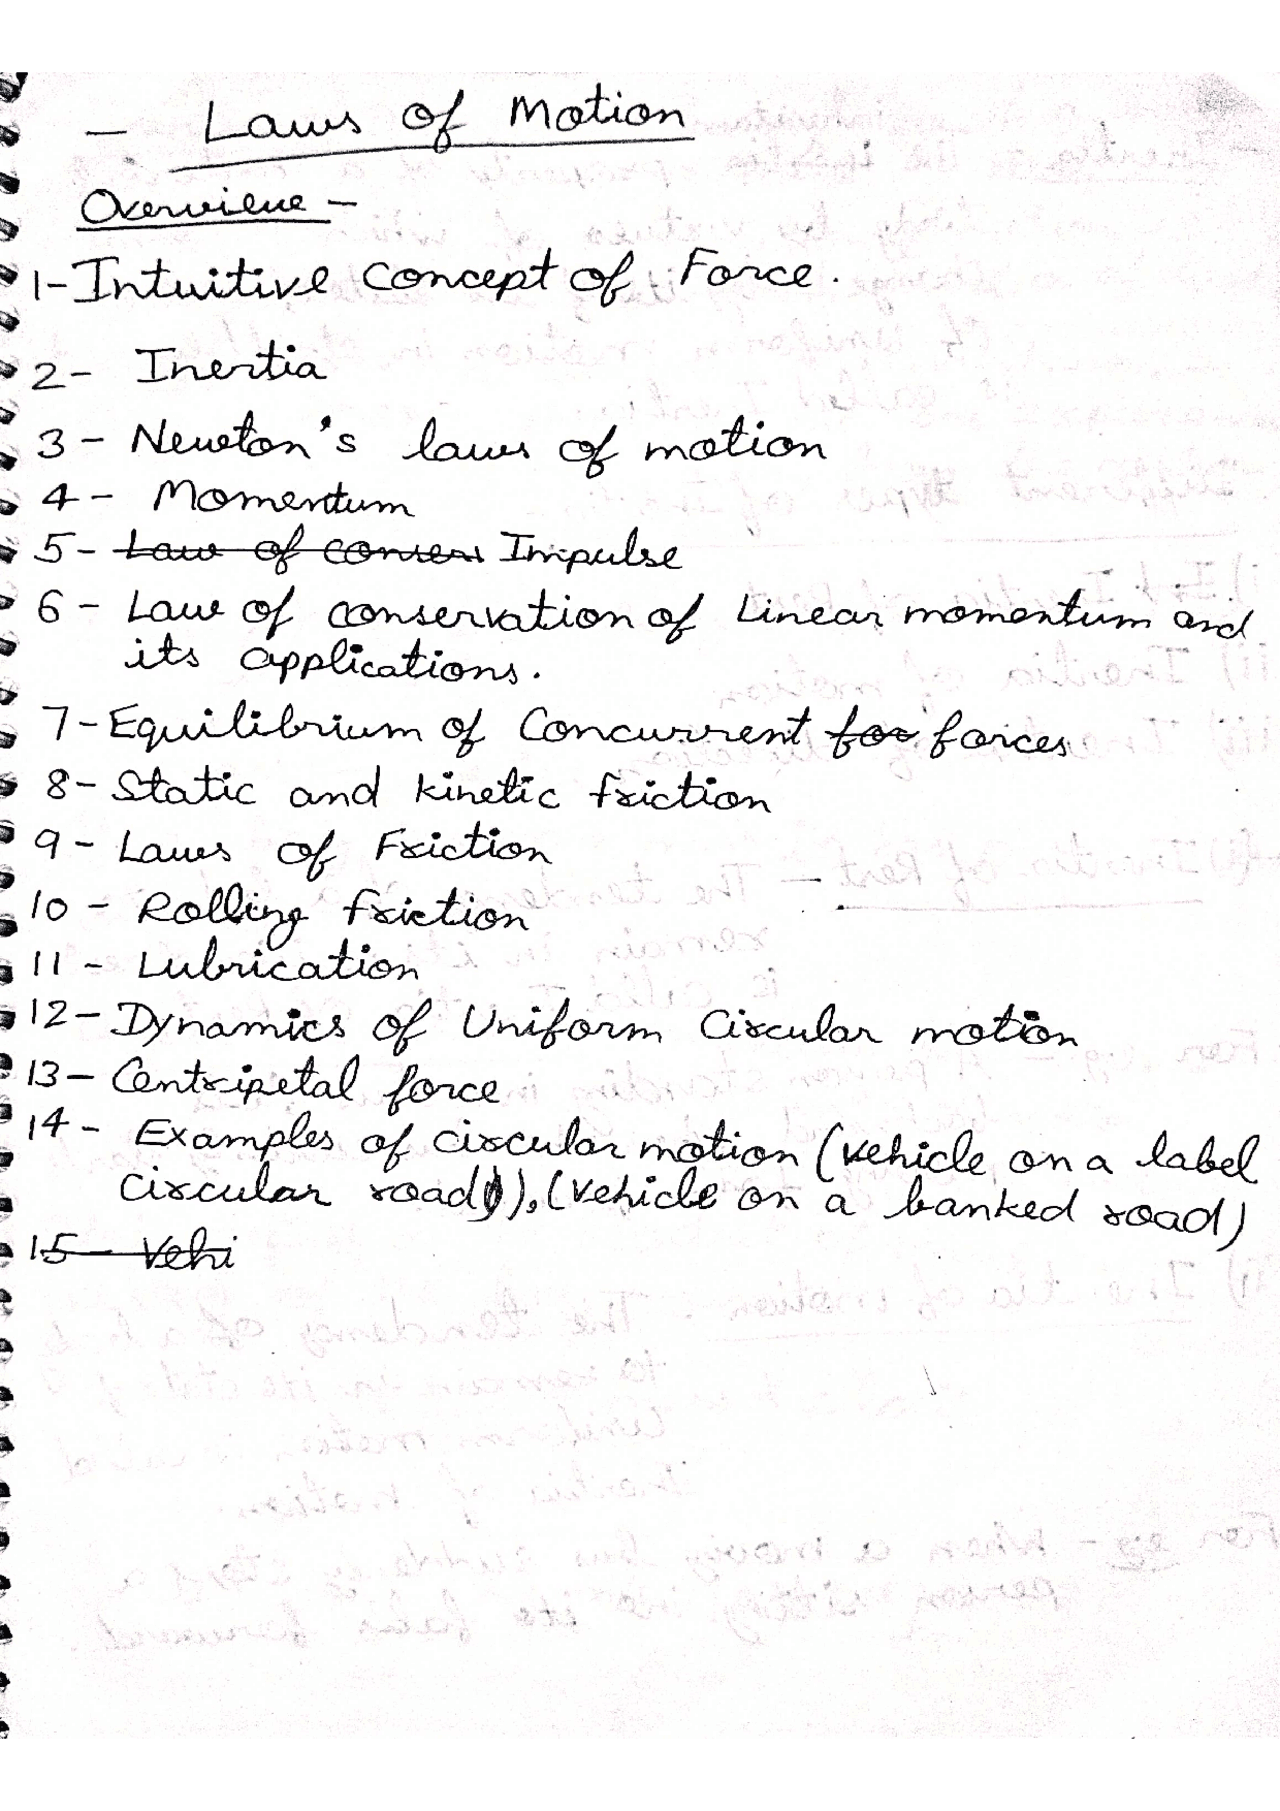 - Laws of Motion
Overview -
1- Intuitive Concept of Force.
2- Inertia
3- Newton's laws of motion
4- Momentum
5- Law of conser Impulse
6- Law of conservation of Linear momentum and
its applications.
7- Equilibrium of Concurrent for forces
8- Static and kinetic friction
9- Laws of Friction
10- Rolling friction
11- Lubrication
12- Dynamics of Uniform Circular motion
13- Centripetal force
14- Examples of circular motion (vehicle on a label
circular road), (vehicle on a banked road)
15- Vehi